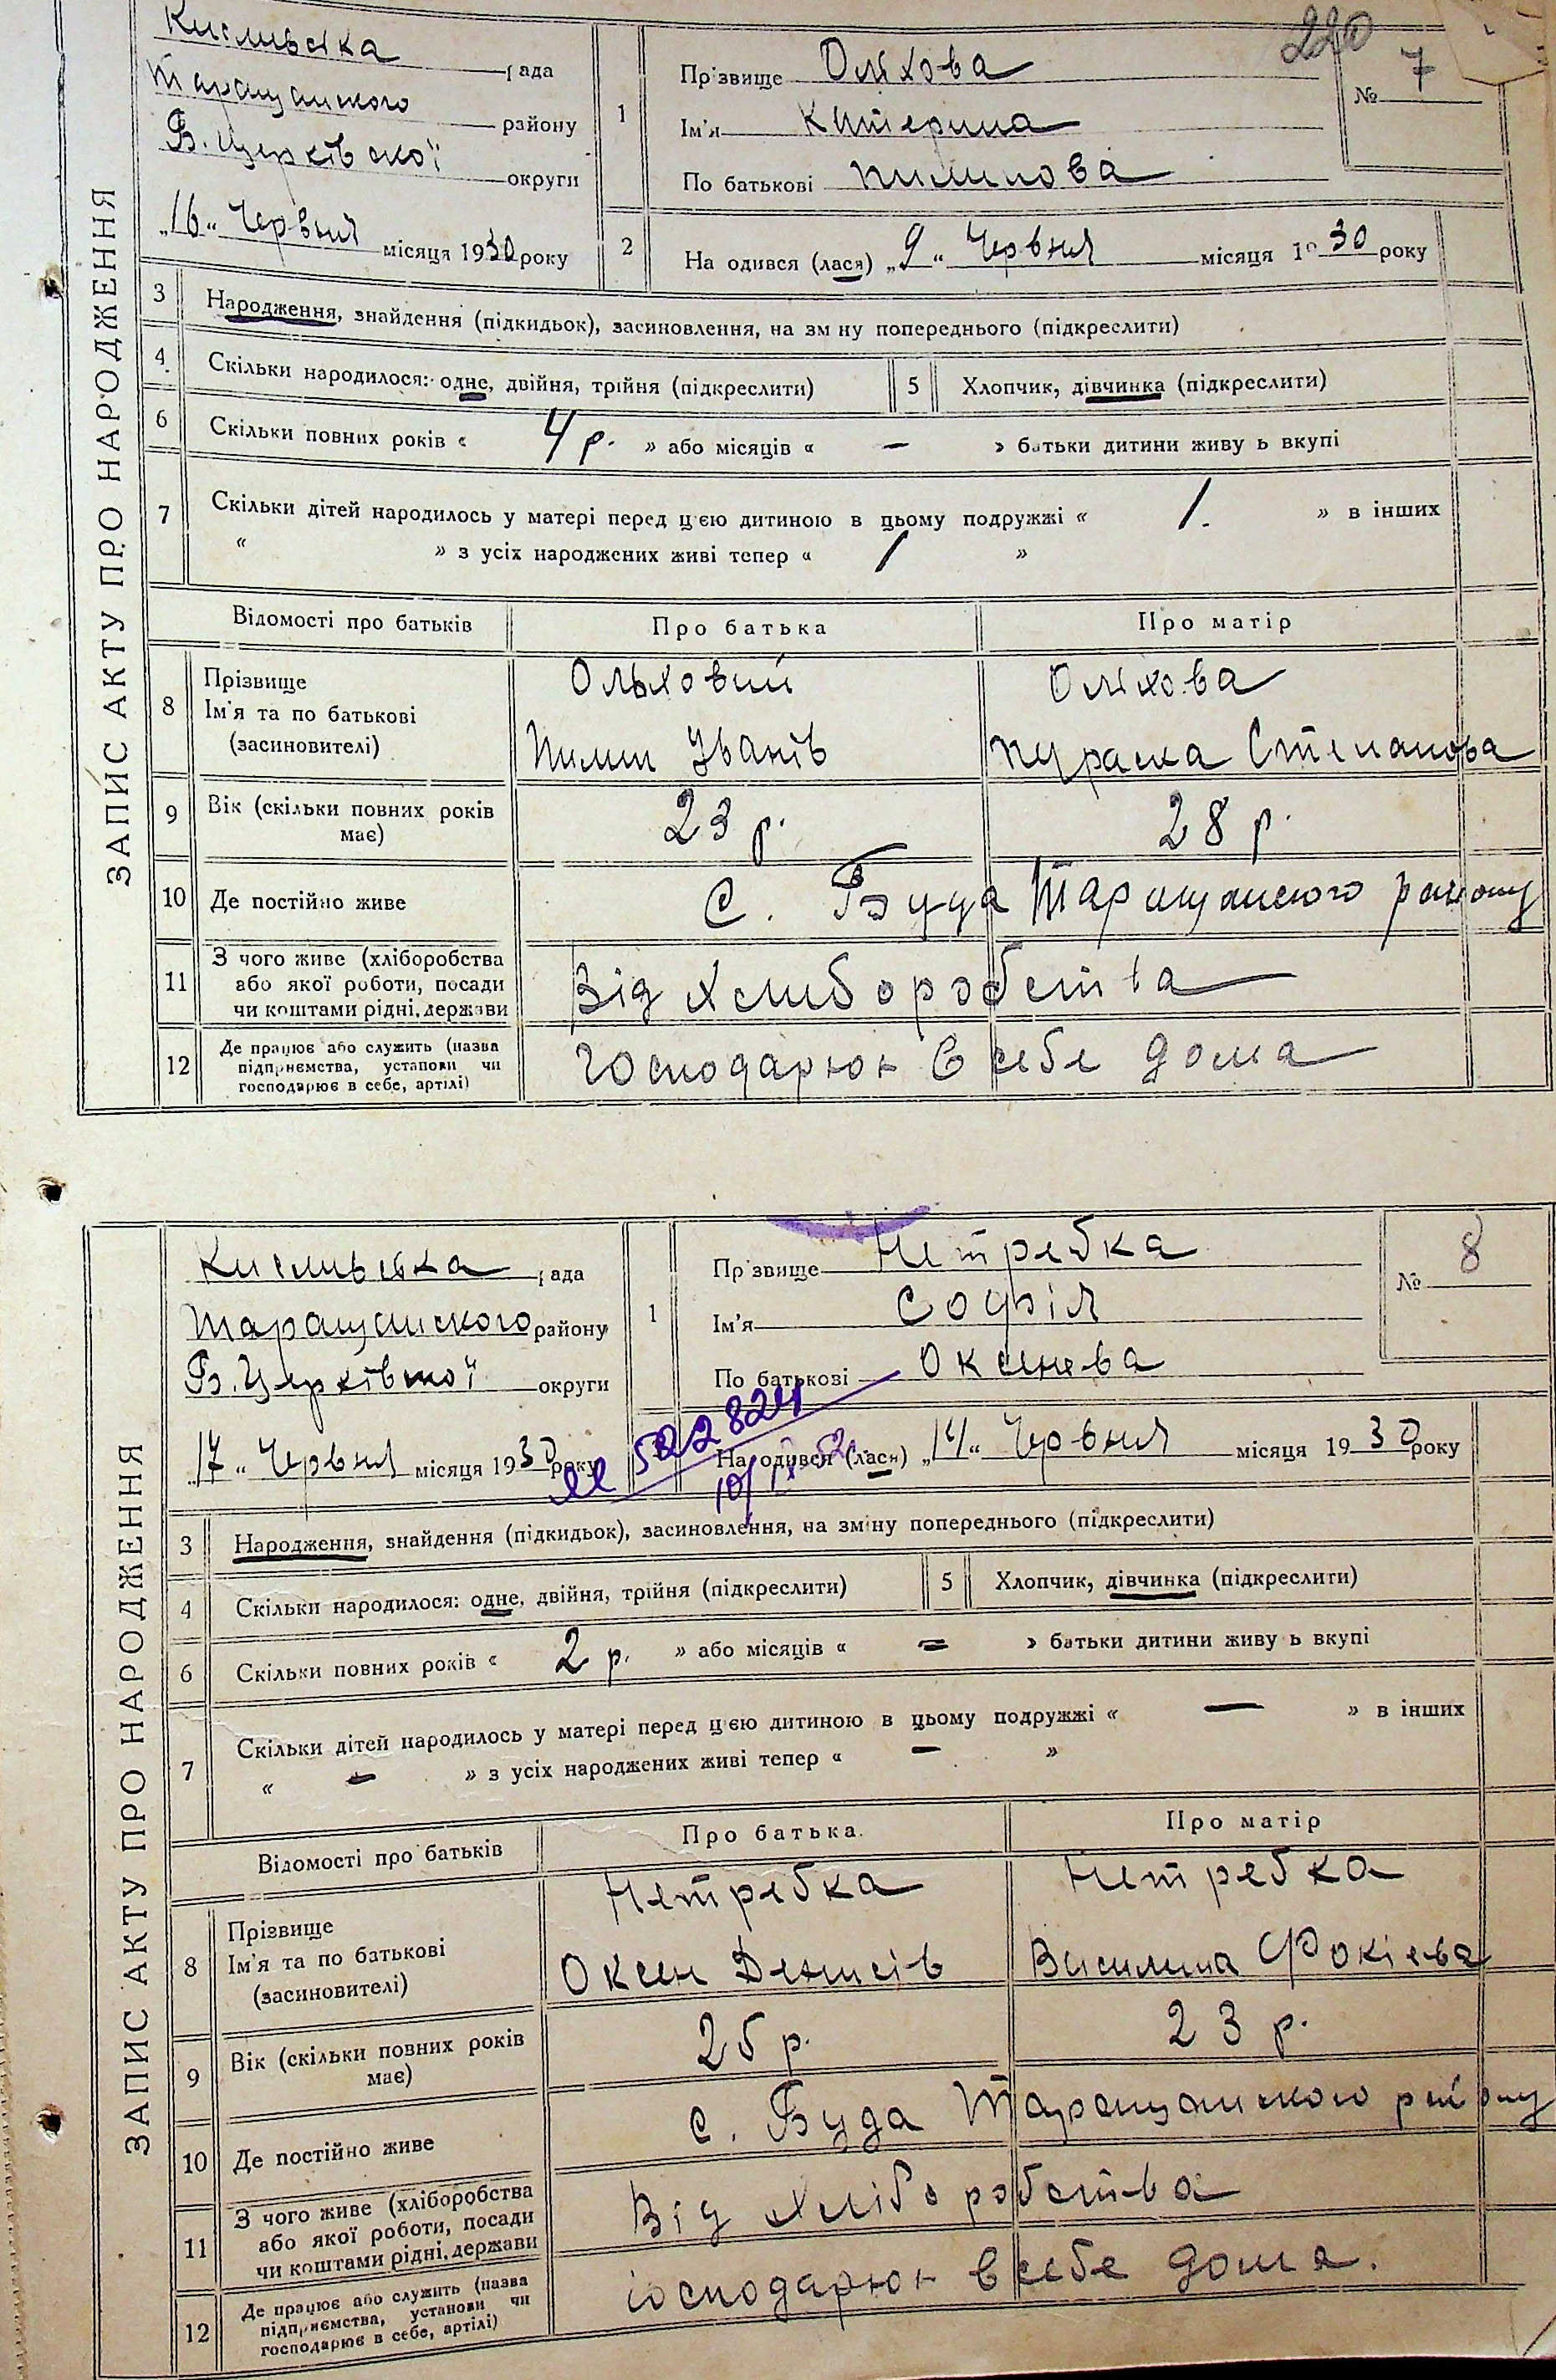 220
ЗАПИС АКТУ ПРО НАРОДЖЕННЯ
Кислівська рада
Таращанского району
Б. Церківської округи
„16“ Червня місяця 1930 року
1
Прізвище Ольхова
Ім'я Катерина
По батькові Пилипова
№ 7
2
На одився (лася) „9“ Червня місяця 1930 року
3 Народження, знайдення (підкидьок), засиновлення, на зм ну попереднього (підкреслити)
4 Скільки народилося: одне, двійня, трійня (підкреслити) 5 Хлопчик, дівчинка (підкреслити)
6 Скільки повних років « 4 р. » або місяців « — » батьки дитини живу ь вкупі
7 Скільки дітей народилось у матері перед цією дитиною в цьому подружжі « 1. » в інших
« » з усіх народжених живі тепер « 1 »
Відомості про батьків Про батька Про матір
8 Прізвище Ольховий Ольхова
Ім'я та по батькові Пилип Іванів Параска Степанова
(засиновителі)
9 Вік (скільки повних років має) 23 р. 28 р.
10 Де постійно живе С. Буда Таращанського району
11 З чого живе (хліборобства
або якої роботи, посади Від Хлиборобства
чи коштами рідні, держави
12 Де працює або служить (назва
підприємства, установи чи Господарюн в себе дома
господарює в себе, артілі)
ЗАПИС АКТУ ПРО НАРОДЖЕННЯ
Кислівська рада
Таращанского району
Б. Церківської округи
„17“ Червня місяця 1930 року
1
Прізвище Нетребка
Ім'я Софія
По батькові Оксенева
№ 8
522824
На одився (лася) „14“ Червня місяця 1930 року
3 Народження, знайдення (підкидьок), засиновлення, на зміну попереднього (підкреслити)
4 Скільки народилося: одне, двійня, трійня (підкреслити) 5 Хлопчик, дівчинка (підкреслити)
6 Скільки повних років « 2 р. » або місяців « — » батьки дитини живу ь вкупі
7 Скільки дітей народилось у матері перед цією дитиною в цьому подружжі « — » в інших
« — » з усіх народжених живі тепер « — »
Відомості про батьків Про батька Про матір
8 Прізвище Нетребка Нетребка
Ім'я та по батькові Оксен Денисів Василина Фокієва
(засиновителі)
9 Вік (скільки повних років має) 25 р. 23 р.
10 Де постійно живе с. Буда Таращанского району
11 З чого живе (хліборобства
або якої роботи, посади Від Хліборобства
чи коштами рідні, держави
12 Де працює або служить (назва
підприємства, установи чи господарюн в себе дома.
господарює в себе, артілі)